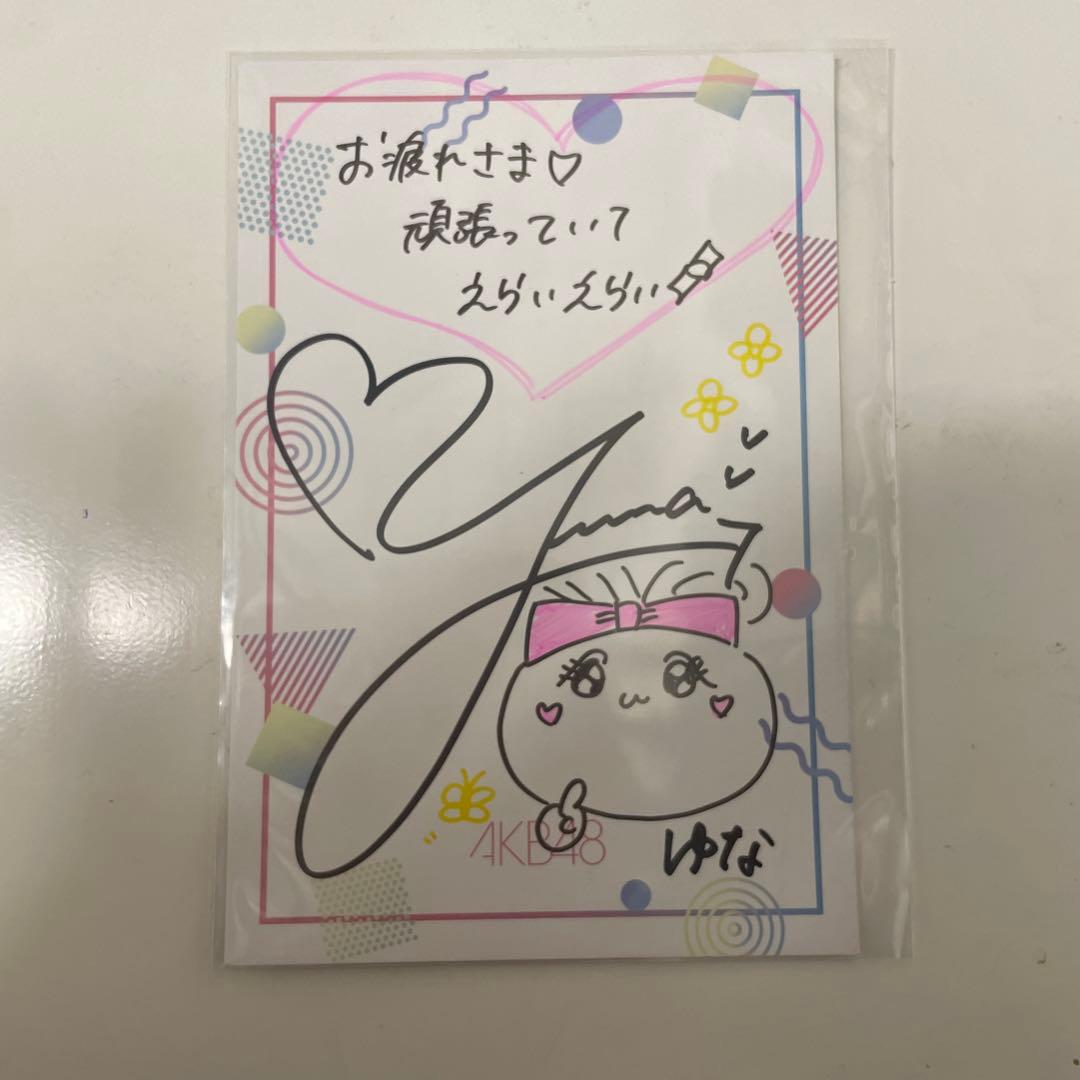 お疲れさま♡
頑張っていて
えらいえらい
yuna
AKB48
ゆな